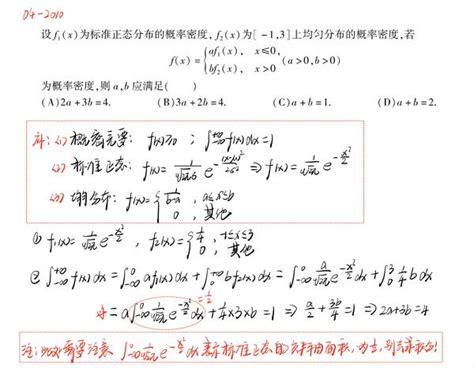 04-2010
设f₁(x)为标准正态分布的概率密度,f₂(x)为[-1,3]上均匀分布的概率密度,若
f(x)={af₁(x), x≤0, bf₂(x), x>0 (a>0,b>0)
为概率密度,则a,b应满足( )
(A)2a+3b=4. (B)3a+2b=4. (C)a+b=1. (D)a+b=2.
(1) 概率密度: f(x)≥0; ∫_{-∞}^{+∞}f(x)dx=1
(2) 标准正态: f(x)=1/(√2π σ) e^{-(x-μ)²/2σ²} ⇒ f(x)=1/√2π e^{-x²/2}
(3) 均匀分布: f(x)={1/(b-a), a≤x≤b 0, 其他
① f₁(x)=1/√2π e^{-x²/2}, f₂(x)={1/4, -1≤x≤3 0, 其他
② ∫_{-∞}^{+∞}f(x)dx=∫_{-∞}^{0}af₁(x)dx+∫_{0}^{+∞}bf₂(x)dx=∫_{-∞}^{0}a/√2π e^{-x²/2}dx+∫_{0}^{3}1/4 b dx
=a∫_{-∞}^{0}1/√2π e^{-x²/2}dx+1/4×3×b=1 ⇒ a/2+3b/4=1 ⇒ 2a+3b=4
=1/2
注:此处需要注意 ∫_{-∞}^{0}1/√2π e^{-x²/2}dx 表示标准正态的